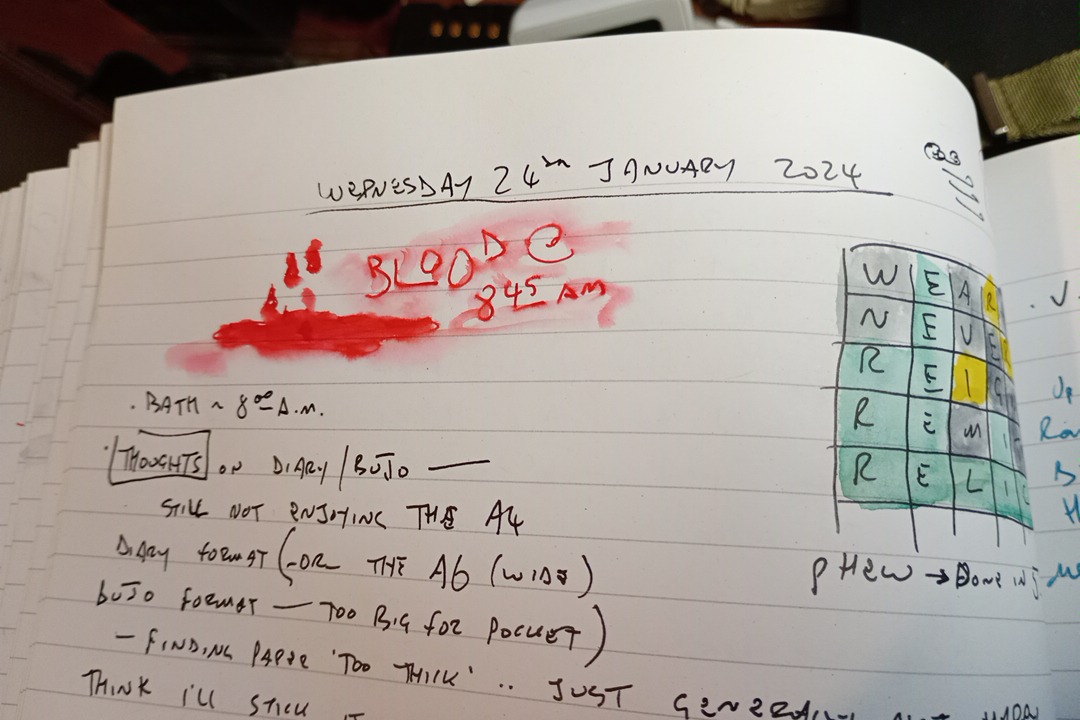 WEDNESDAY 24TH JANUARY 2024
33
BLOOD @
8 45 AM
W E A R
N E V E R
R E I G
R E M I
R E L I C
PHEW → DONE IN 5
. BATH ~ 8 00 A.M.
THOUGHTS ON DIARY / BUJO —
STILL NOT ENJOYING THE A4
DIARY FORMAT (-OR THE A6 (WIDE)
BUJO FORMAT — TOO BIG FOR POCKET)
- FINDING PAPER 'TOO THICK' .. JUST
THINK I'LL STICK IT